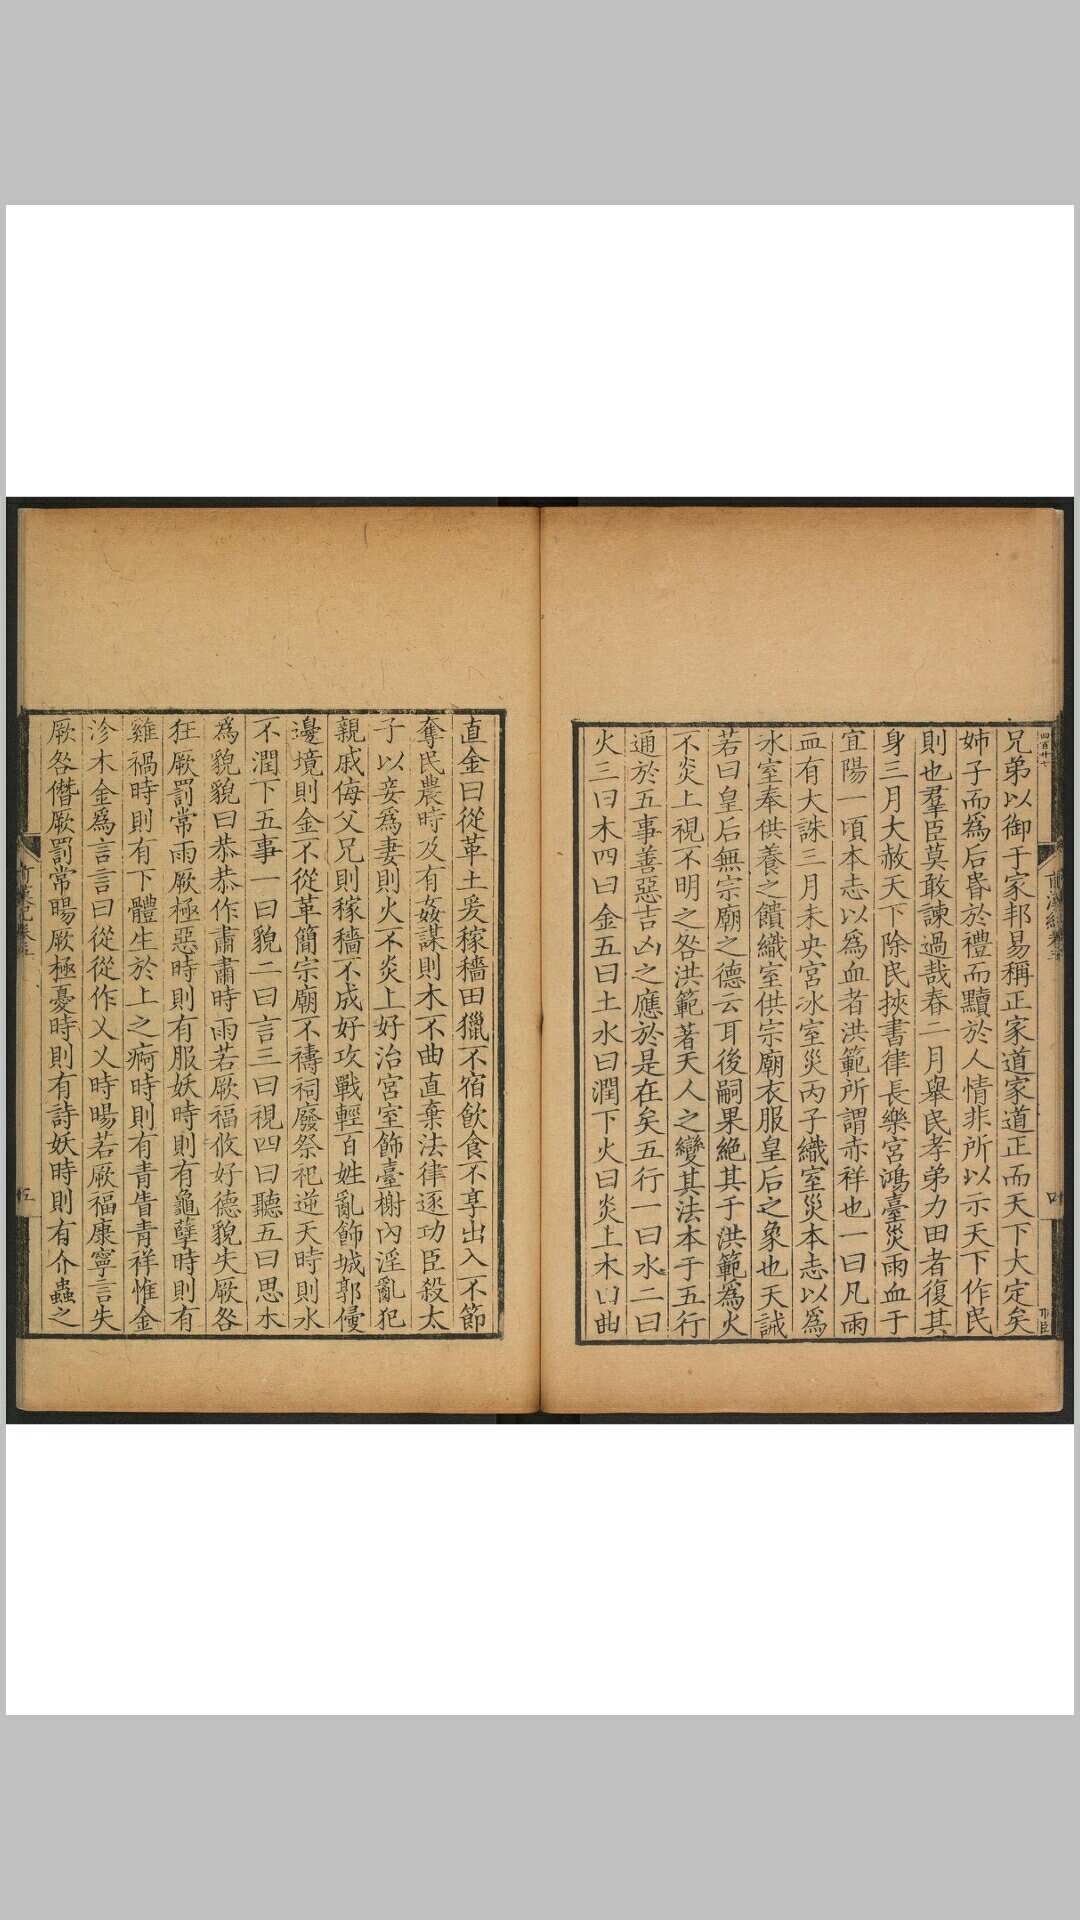 兄弟以御于家邦易稱正家道家道正而天下大定矣
姉子而為后昬於禮而黷於人情非所以示天下作民
則也羣臣莫敢諫過哉春二月舉民孝弟力田者復其
身三月大赦天下除民挾書律長樂宮鴻臺災雨血于
宜陽一頃本志以為血者洪範所謂赤祥也一曰凡雨
血有大誅三月未央宮冰室災丙子織室災本志以為
冰室奉供養之饋織室供宗廟衣服皇后之象也天誡
若曰皇后無宗廟之德云耳後嗣果絶其于洪範為火
不炎上視不明之咎洪範著天人之變其法本于五行
通於五事善惡吉凶之應於是在矣五行一曰水二曰
火三曰木四曰金五曰土水曰潤下火曰炎上木曰曲
直金曰從革土爰稼穡田獵不宿飲食不享出入不節
奪民農時及有姦謀則木不曲直棄法律逐功臣殺太
子以妾為妻則火不炎上好治宮室飾臺榭內淫亂犯
親戚侮父兄則稼穡不成好攻戰輕百姓亂飾城郭侵
邊境則金不從革簡宗廟不禱祠廢祭祀逆天時則水
不潤下五事一曰貌二曰言三曰視四曰聽五曰思木
為貌貌曰恭恭作肅肅時雨若厥福攸好德貌失厥咎
狂厥罰常雨厥極惡時則有服妖時則有龜孽時則有
雞禍時則有下體生於上之痾時則有青眚青祥惟金
沴木金為言言曰從從作乂乂時暘若厥福康寧言失
厥咎僭厥罰常暘厥極憂時則有詩妖時則有介蟲之